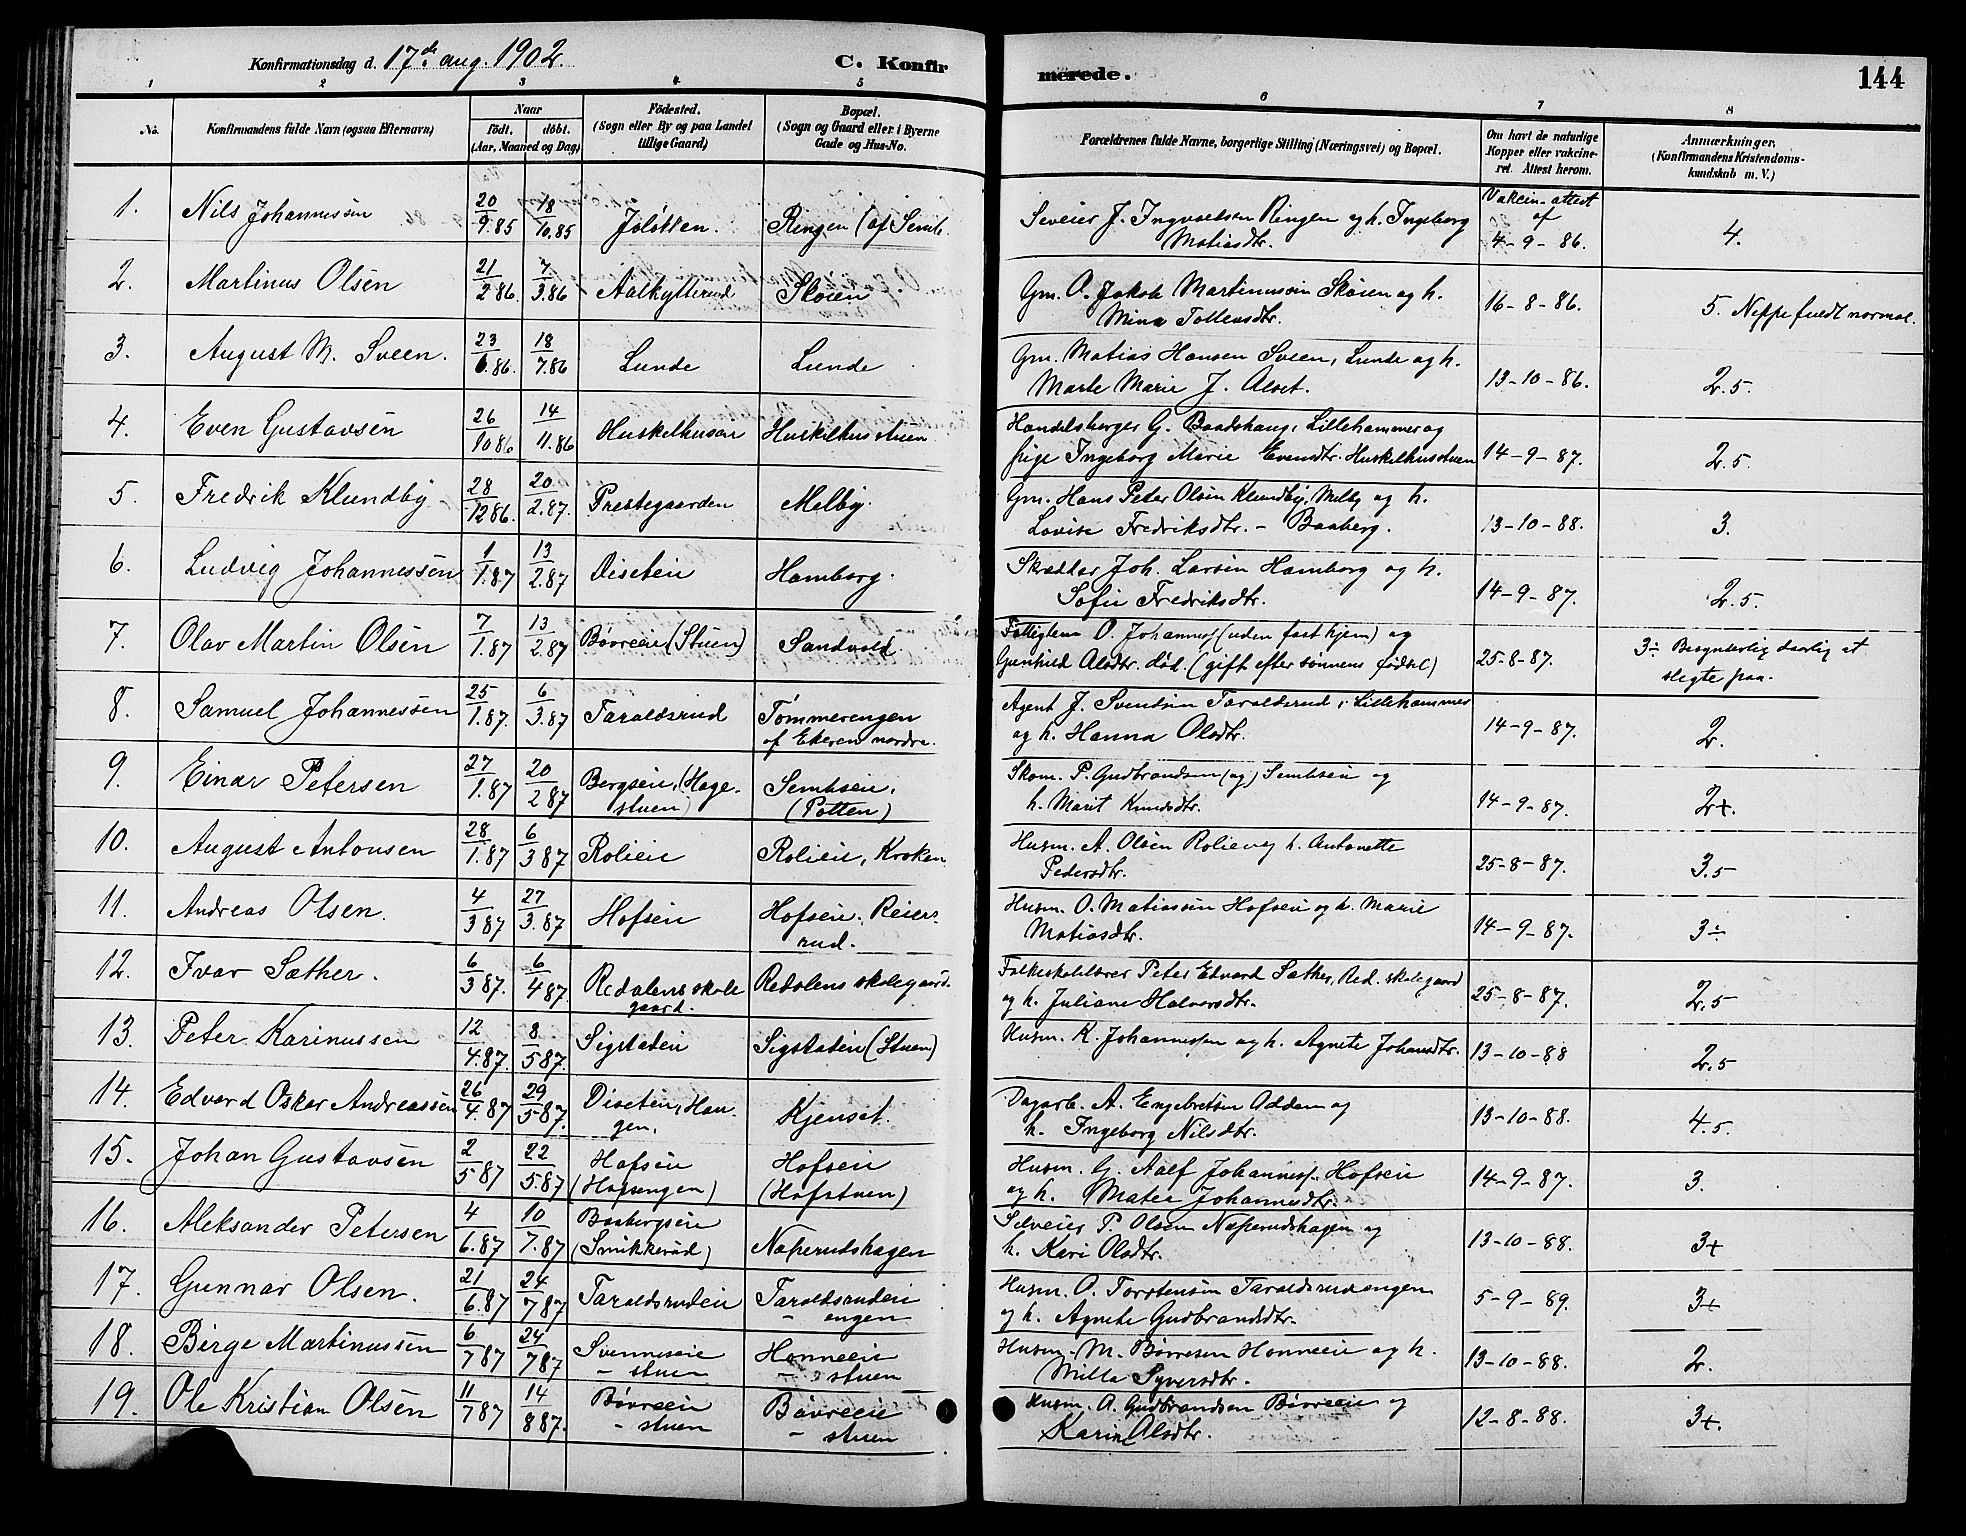 Konfirmationsdag d. 17de aug. 1902.
C. Konfirmerede.
144
1 2 3 4 5 6 7 8
No.
Konfirmandens fulde Navn (ogsaa Efternavn)
Naar
født. døbt.
(Aar, Maaned og Dag)
Fødested.
(Sogn eller By og paa Landet
tillige Gaard)
Bopæl.
(Sogn og Gaard eller i Byerne
Gade og Hus-No.
Forældrenes fulde Navne, borgerlige Stilling (Næringsvei) og Bopæl.
Om havt de naturlige
Kopper eller vakcine-
ret. Attest herom.
Anmærkninger,
(Konfirmandens Kristendoms-
kundskab m. V.)
1. Nils Johannessen 20/9.85 18/10.85 Ringen (af Semb. J. Ingvoldsen Ringen og h. Ingeborg
Matiasdtr. Vakcin-attest
af
4-9-86. 4.
2. Martinus Olsen 21/2 86. 7/3.86 Aalkytterud Skøien Gm. O. Jakob Martinussen Skøien og h.
Mina Tollensdtr. 16-8-86. 5. Neppe fuldt normal.
3. August M. Sveen. 23/6.86. 18/7.86 Lunde Lunde Gm. Matias Hansen Sveen, Lunde og h.
Marte Marie J. Alset. 13-10-86. 2.5.
4. Even Gustavsen 26/10 86 14/11.86 Huskelhusstuen Handelsborger G. Baadshaug, Lillehammer og
pige Ingeborg Marie Evensdtr. Huskelhusstuen 14-9-87. 2.5.
5. Fredrik Klundby 28/12 86. 20/2.87. Prestegaarden Melby. Gm. Hans Peter Olsen Klundby, Melby og h.
Lovise Fredriksdtr. - Baaberg. 13-10-88. 3.
6. Ludvig Johannessen 1/1.87 13/2.87 Diseteie Hamborg. Skrædder Joh. Larsen Hamborg og h.
Sofie Fredriksdtr. 14-9-87. 2.5.
7. Olav Martin Olsen 7/1.87 13/2.87 Bøvreeie (Stuen) Sandvold. Fattiglem O. Johannes. (uden fast hjem) og
Gunhild Alsdtr. død. (gift efter sønnens fødsel) 25-8-87. 3÷ Besynderlig daarlig at
slegte paa.
8. Samuel Johannessen 25/1.87. 6/3.87 Taraldsrud Tømmerengen
af Ekeren nordre. Agent J. Svendsen Taraldsrud i Lillehammer
og h. Hanna Olsdtr. 14-9-87. 2.
9. Einar Petersen 27/1.87 20/2 87 Bergseie, (Hage-
stuen) Sembseie,
(Potten) Skom. P. Gudbrandsen (og) Sembseie og
h. Marit Knudsdtr. 14-9-87. 2+.
10. August Antonsen 28/1.87 6/3 87 Rolieie Rolieie, Kroken Husm. A. Olsen Rolieie og h. Antonette
Pedersdtr. 25-8-87. 3.5
11. Andreas Olsen. 4/3 87 27/3.87 Hofseie Hofseie, Reiers-
rud. Husm. O. Matiassen Hofseie og h. Marie
Matiasdtr. 14-9-87. 3÷
12. Ivar Sæther. 6/3 87. 6/4 87. Redalens skole
gaard. Redalens skolegaard. Folkeskolelærer Peter Edvard Sæther, Red. skolegaard
og h. Juliane Halvorsdtr. 25-8-87. 2.5
13. Peter Karinussen 12/4.87. 8/5 87. Sigstadeie Sigstadeie (Stuen) Husm. K. Johannessen og h. Agnete Johansdtr. 13-10-88 2.5
14. Edvard Oskar Andreassen 26/4.87 29/5 87. Diseteie, Hau-
gen. Kjenset. Dagarb. A. Engebretsen Adden og
h. Ingeborg Nilsdtr. 13-10-88. 4.5.
15. Johan Gustavsen 2/5 87 22/5.87 Hofseie
(Hofsengen) Hofseie
(Hofstuen) Husm. G. Adolf Johannes. Hofseie
og h. Matea Johannesdtr. 14-9-87. 3.
16. Aleksander Petersen 4/6.87 10/7.87 Baabergseie
(Smikkerud) Næperudshagen Selveier P. Olsen Næperudshagen og
h. Kari Olsdtr. 13-10-88. 3+
17. Gunnar Olsen. 21/6.87 24/7 87 Taraldsrudeie Taraldsrudeie
- engen Husm. O. Torstensen Taraldsrudengen
og h. Agnete Gudbrandsdtr. 5-9-89. 3+
18. Birge Martinussen 6/7 87 24/7 87 Svenneseie
- stuen Honneeie
- stuen Husm. M. Børresen Honneeie og h.
Milla Syversdtr. 13-10-88. 2.
19. Ole Kristian Olsen 11/7 87 14/8 87. Bøvreeie
- stuen Bøvreeie
- stuen Husm. A. Gudbrandsen Bøvreeie og
Karine Olsdtr. 12-8-88. 3+.